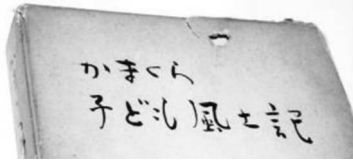 かまくら
子ども風土記